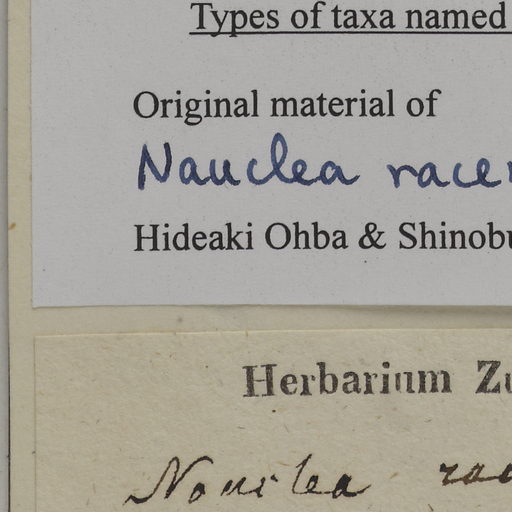 Types of taxa named
Original material of
Nauclea racem
Hideaki Ohba & Shinobu
Herbarium Zu
Nauclea rac